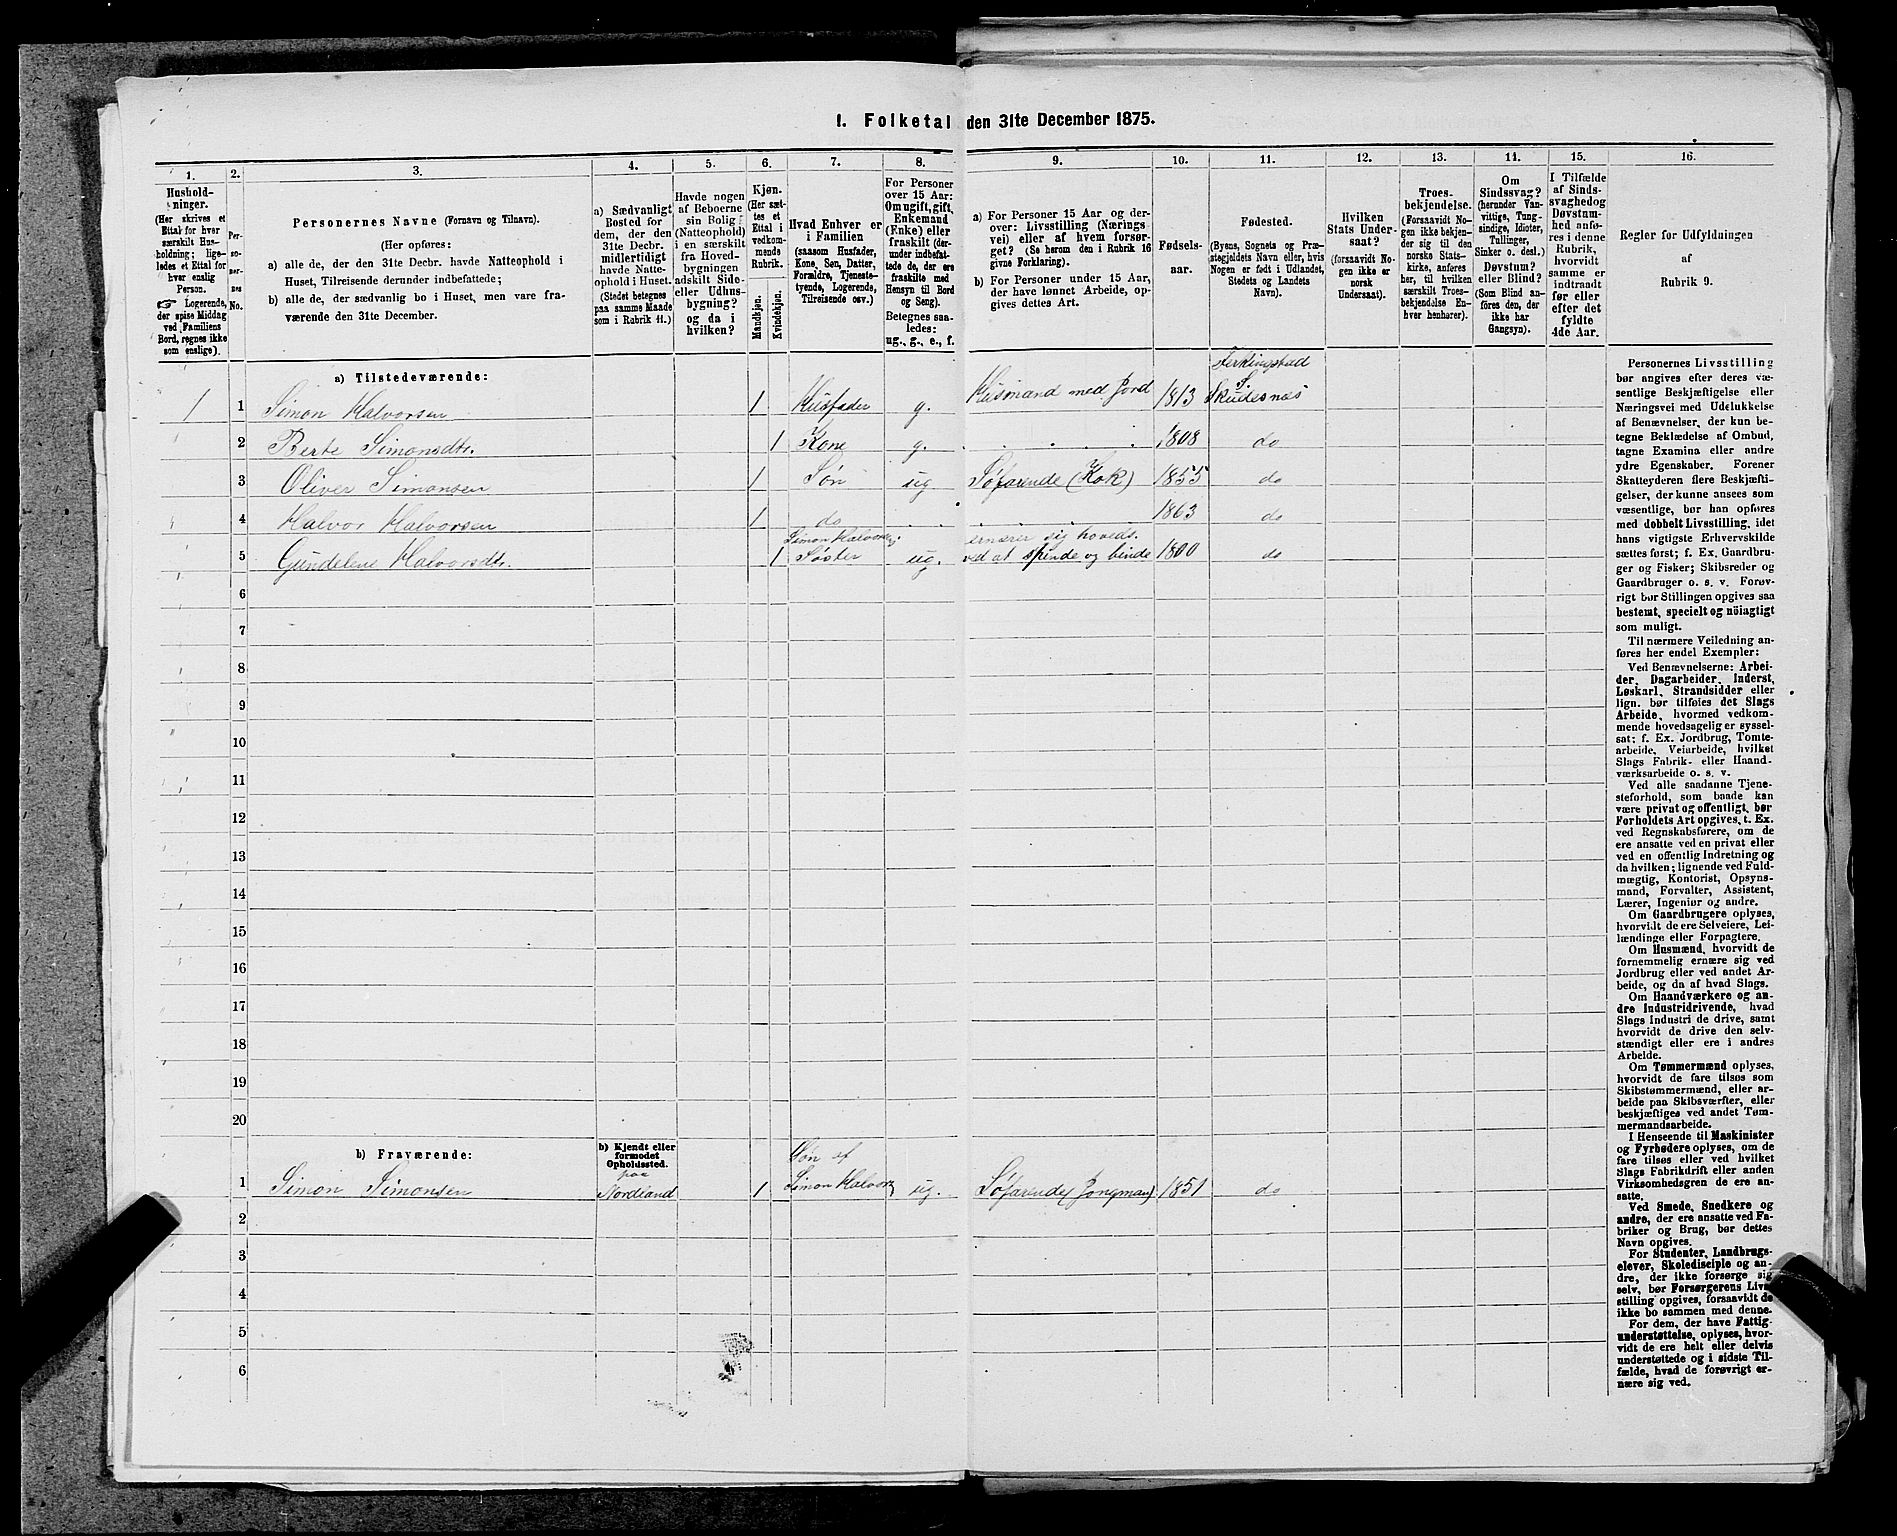 1. Folketal den 31te December 1875.
1. 2. 3. 4. 5. 6. 7. 8. 9. 10. 11. 12. 13. 14. 15. 16.
Hushold-
ninger.
(Her skrives et
Ettal for hver
særskilt Hus-
holdning; lige-
ledes et Ettal for
hver enslig
Person.
☞ Logerende,
der spise Middag
ved Familiens
Bord, regnes ikke
som enslige).
Per-
so-
ner-
nes
No.
Personernes Navne (Fornavn og Tilnavn).
(Her opføres:
a) alle de, der den 31te Decbr. havde Natteophold i
Huset, Tilreisende derunder indbefattede;
b) alle de, der sædvanlig bo i Huset, men vare fra-
værende den 31te December.
a) Sædvanligt
Bosted for
dem, der den
31te Decbr.
midlertidigt
havde Natte-
ophold i Huset.
(Stedet betegnes
paa samme Maade
som i Rubrik 11.)
Havde nogen
af Beboerne
sin Bolig
(Natteophold)
i en særskilt
fra Hoved-
bygningen
adskilt Side-
eller Udhus-
bygning?
og da i
hvilken?
Kjøn.
(Her sæt-
tes et
Ettal i
vedkom-
mende
Rubrik.
Mandkjøn.
Kvindekjøn.
Hvad Enhver er
i Familien
(saasom Husfader,
Kone, Søn, Datter,
Forældre, Tjeneste-
tyende, Logerende,
Tilreisende osv.)
For Personer
over 15 Aar:
Om ugift, gift,
Enkemand
(Enke) eller
fraskilt (der-
under indbefat-
tede de, der ere
fraskilte med
Hensyn til Bord
og Seng).
Betegnes saa-
ledes:
ug., g., e., f.
a) For Personer 15 Aar og der-
over: Livsstilling (Nærings-
vei) eller af hvem forsør-
get? (Se herom den i Rubrik 16
givne Forklaring).
b) For Personer under 15 Aar,
der have lønnet Arbeide, op-
gives dettes Art.
Fødsels-
aar.
Fødested.
(Byens, Sognets og Præ-
stegjeldets Navn eller, hvis
Nogen er født i Udlandet,
Stedets og Landets
Navn).
Hvilken
Stats Under-
saat?
(forsaavidt No-
gen ikke er
norsk
Undersaat).
Troes-
bekjendelse.
(Forsaavidt No-
gen ikke bekjen-
der sig til den
norske Stats-
kirke, anføres
her, til hvilken
særskilt Troes-
bekjendelse En-
hver henhører).
Om
Sindssvag?
(herunder Van-
vittige, Tung-
sindige, Idioter,
Tullinger,
Sinker o. desl.)
Døvstum?
eller Blind?
(Som Blind an-
føres den, der
ikke har
Gangsyn).
I Tilfælde
af Sinds-
svaghed og
Døvstum-
hed anfø-
res i denne
Rubrik,
hvorvidt
samme er
indtraadt
før eller
efter det
fyldte
4de Aar.
Regler for Udfyldningen
af
Rubrik 9.
a) Tilstedeværende:
Ferkingstad
1 1 Simon Halvorsen 1 Husfader g. Husmand med Jord 1813 Skudesnæs
2 Berte Simonsdtr. 1 Kone g. 1808 do
3 Oliver Simonsen 1 Søn ug Søfarende (Kok) 1855 do
4 Halvor Halvorsen 1 do 1863 do
Simon Halvorsens ernærer sig hoveds.
5 Gundelene Halvorsdtr. 1 Søster ug. ved at spinde og binde 1800 do
6
7
8
9
10
11
12
13
14
15
16
17
18
19
20
b) Fraværende:
b) Kjendt eller
formodet
Opholdssted.
paa Søn af
1 Simon Simonsen Nordland 1 Simon Halvors. ug. Søfarende (Jongman) 1851 do
2
3
4
5
6
Personernes Livsstilling
bør angives efter deres væ-
sentlige Beskjæftigelse eller
Næringsvei med Udelukkelse
af Benævnelser, der kun be-
tegne Beklædelse af Ombud,
tagne Examina eller andre
ydre Egenskaber. Forener
Skatteyderen flere Beskjæfti-
gelser, der kunne ansees som
væsentlige, bør han opføres
med dobbelt Livsstilling, idet
hans vigtigste Erhvervskilde
sættes først; f. Ex. Gaardbru-
ger og Fisker; Skibsreder og
Gaardbruger o. s. v. Forøv-
rigt bør Stillingen opgives saa
bestemt, specielt og nöiagtigt
som muligt.
Til nærmere Veiledning an-
føres her endel Exempler:
Ved Benævnelserne: Arbei-
der, Dagarbeider, Inderst,
Løskarl, Strandsidder eller
lign. bør tilføies det Slags
Arbeide, hvormed vedkom-
mende hovedsagelig er syssel-
sat; f. Ex. Jordbrug, Tomte-
arbeide, Veiarbeide, hvilket
Slags Fabrik- eller Haand-
værksarbeide o. s. v.
Ved alle saadanne Tjene-
steforhold, som baade kan
være privat og offentligt, bør
Forholdets Art opgives, t. Ex.
ved Regnskabsførere, om de
ere ansatte ved en privat eller
ved en offentlig Indretning og
da hvilken; lignende ved Fuld-
mægtig, Kontorist, Opsyns-
mand, Forvalter, Assistent,
Lærer, Ingeniør og andre.
Om Gaardbrugere oplyses,
hvorvidt de ere Selveiere, Lei-
lændinge eller Forpagtere.
Om Husmænd, hvorvidt de
fornemmelig ernære sig ved
Jordbrug eller ved andet Ar-
beide, og da af hvad Slags.
Om Haandværkere og an-
dre Industridrivende, hvad
Slags Industri de drive, samt
hvorvidt de drive den selv-
stændigt eller ere i andres
Arbeide.
Om Tømmermænd oplyses,
hvorvidt de fare tilsøs som
Skibstømmermænd, eller ar-
beide paa Skibsværfter, eller
beskjæftiges ved andet Tøm-
mermandsarbeide.
I Henseende til Maskinister
og Fyrbødere oplyses, om de
fare tilsøs eller ved hvilket
Slags Fabrikdrift eller anden
Virksomhedsgren de ere an-
satte.
Ved Smede, Snedkere og
andre, der ere ansatte ved Fa-
briker og Brug, bør dettes
Navn opgives.
For Studenter, Landbrugs-
elever, Skoledisciple og an-
dre, der ikke forsørge sig
selv, bør Forsørgerens Livs-
stilling opgives, forsaavidt de
ikke bo sammen med denne.
For dem, der have Fattig-
understøttelse, oplyses, hvor-
vidt de ere helt eller delvis
understøttede og i sidste Til-
fælde, hvad de forøvrigt er-
nære sig ved.